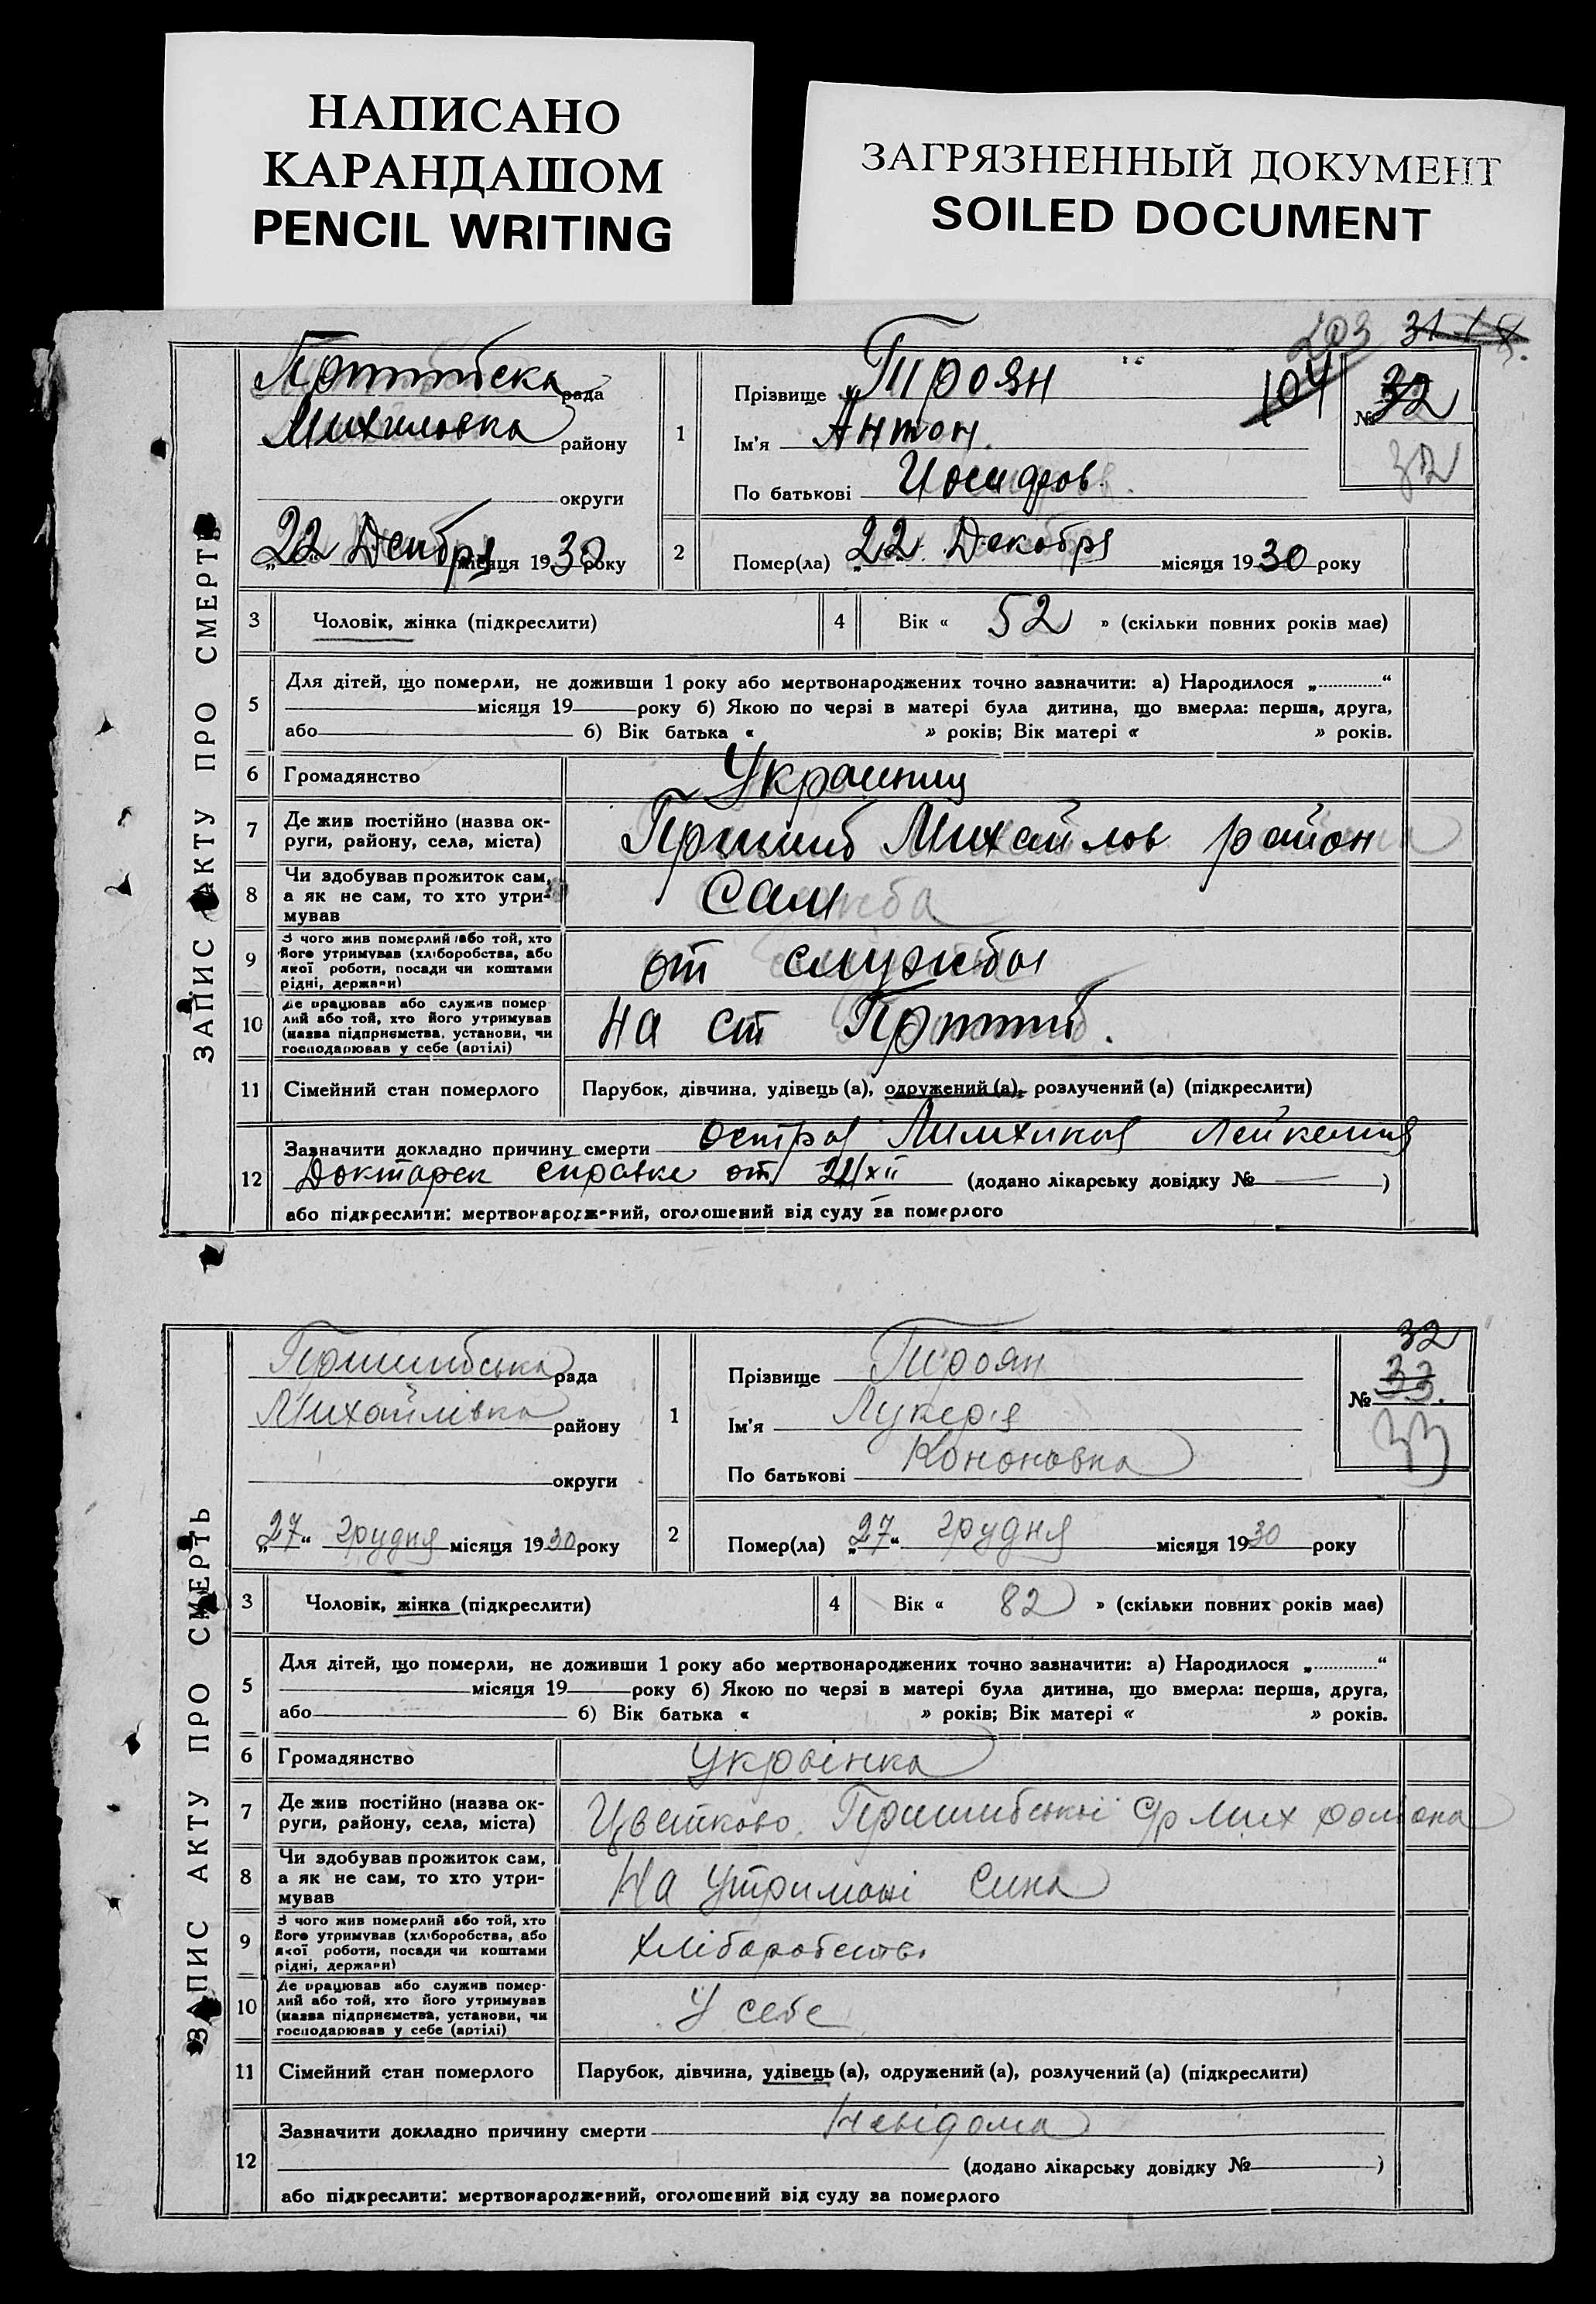 НАПИСАНО
КАРАНДАШОМ
PENCIL WRITING
ЗАГРЯЗНЕННЫЙ ДОКУМЕНТ
SOILED DOCUMENT
ЗАПИС АКТУ ПРО СМЕРТЬ
рада
району
округи
22 Декбря місяця 1930 року
1
Прізвище Троян
Ім'я Антон
По батькові Иосифов.
104
№ 32
32
2
Помер(ла) 22 Декобря місяця 1930 року
3 Чоловік, жінка (підкреслити)
4 Вік « 52 » (скільки повних років має)
5
Для дітей, що померли, не доживши 1 року або мертвонароджених точно зазначити: а) Народилося „ “
місяця 19 року б) Якою по черзі в матері була дитина, що вмерла: перша, друга,
або б) Вік батька « » років; Вік матері « » років.
6 Громадянство Украинец
7 Де жив постійно (назва ок-
руги, району, села, міста)
Пришиб Михайлов район
8 Чи здобував прожиток сам,
а як не сам, то хто утри-
мував
Сам
9 З чого жив померлий або той, хто
його утримував (хліборобства, або
якої роботи, посади чи коштами
рідні, держави)
от службы
10 Де працював або служив помер
лий або той, хто його утримував
(назва підприємства, установи, чи
господарював у себе (артілі)
на ст Пришиб.
11 Сімейний стан померлого Парубок, дівчина, удівець (а), одружений (а), розлучений (а) (підкреслити)
12
Зазначити докладно причину смерти острая Лейкемия
справке от XII (додано лікарську довідку № — )
або підкреслити: мертвонароджений, оголошений від суду за померлого
ЗАПИС АКТУ ПРО СМЕРТЬ
Пришибська рада
Михайлівка району
округи
„27“ грудня місяця 1930 року
1
Прізвище Троян
Ім'я Лукерія
По батькові Кононовна
32
№ 33.
33
2
Помер(ла) „27“ грудня місяця 1930 року
3 Чоловік, жінка (підкреслити)
4 Вік « 82 » (скільки повних років має)
5
Для дітей, що померли, не доживши 1 року або мертвонароджених точно зазначити: а) Народилося „ “
місяця 19 року б) Якою по черзі в матері була дитина, що вмерла: перша, друга,
або б) Вік батька « » років; Вік матері « » років.
6 Громадянство Українка
7 Де жив постійно (назва ок-
руги, району, села, міста)
Цветково Пришибської с/р Мих района
8 Чи здобував прожиток сам,
а як не сам, то хто утри-
мував
На утримані сина
9 З чого жив померлий або той, хто
його утримував (хліборобства, або
якої роботи, посади чи коштами
рідні, держави)
Хліборобство
10 Де працював або служив помер-
лий або той, хто його утримував
(назва підприємства, установи, чи
господарював у себе (артілі)
У себе
11 Сімейний стан померлого Парубок, дівчина, удівець (а), одружений (а), розлучений (а) (підкреслити)
12
Зазначити докладно причину смерти Невідома
(додано лікарську довідку № )
або підкреслити: мертвонароджений, оголошений від суду за померлого